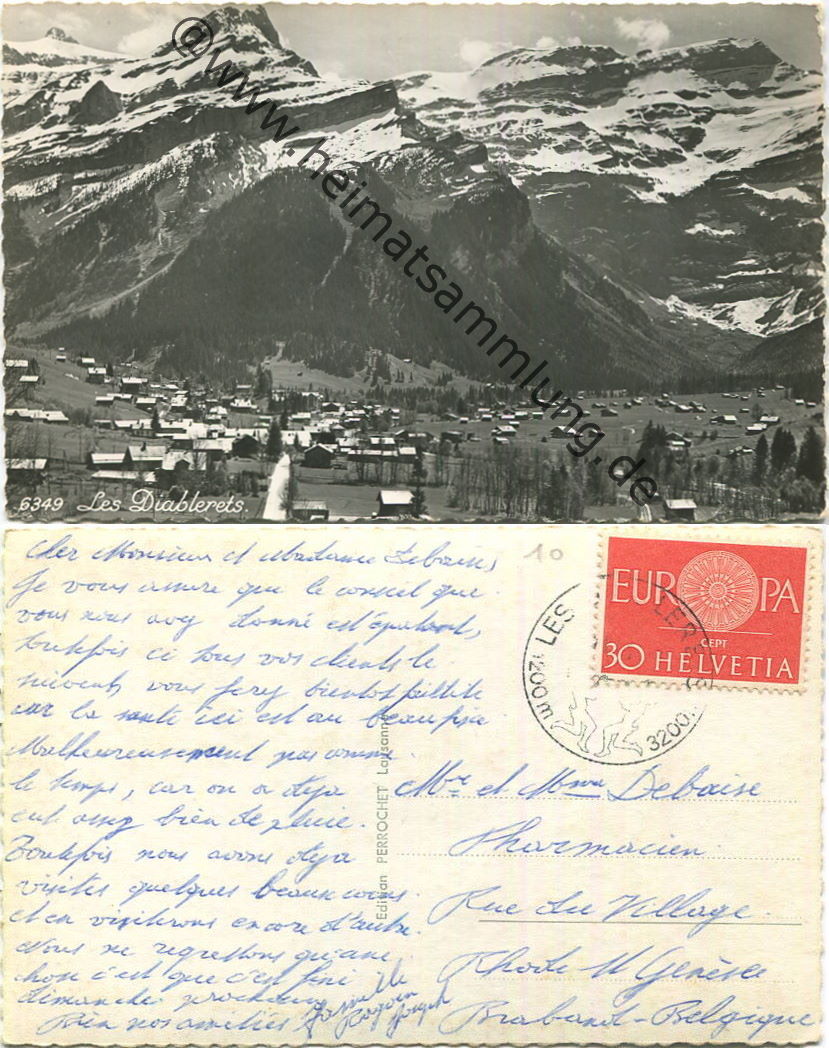 @www.heimatsammlung.de
6349 Les Diablerets.
Cher Monsieur et Madame Debaise,
Je vous assure que le conseil que
vous nous avez donné est épatant,
toutefois si tous vos clients le
suivent, vous ferez bientôt faillite
car la santé ici est au beau fixe
Malheureusement pas comme
le temps, car on a déjà
eut assez bien de pluie.
Toutefois nous avons déjà
visités quelques beaux coins
et en visiterons encore d'autre.
Nous ne regrettons qu'une
chose c'est que c'est fini
dimanche prochain
Bien nos amitiés
Famille
Joseph
10
LES DIABLERETS
1200 m
3200 m
EUROPA
CEPT
30 HELVETIA
Edition PERROCHET Lausanne
Mr et Mme Debaise
Pharmacien
Rue du Village
Rhode St Genèse
Braband-Belgique